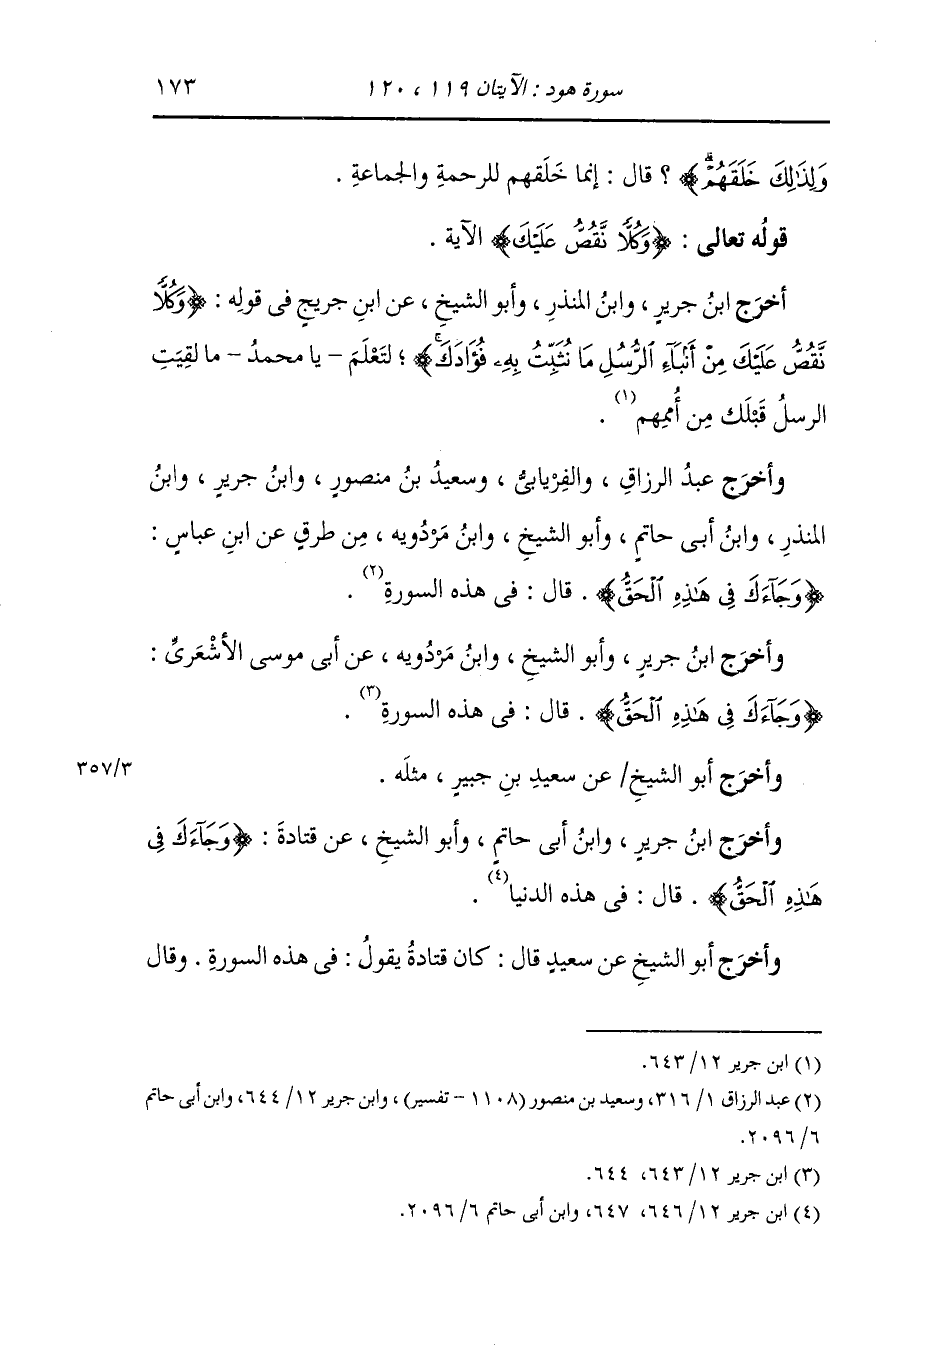 سورة هود : الآيتان ١١٩ ، ١٢٠ ١٧٣
وَلِذَٰلِكَ خَلَقَهُمْۗ﴾ ؟ قال : إنما خَلَقهم للرحمةِ والجماعةِ .
قولُه تعالى : ﴿وَكُلًّا نَّقُصُّ عَلَيْكَ﴾ الآية .
أخرَج ابنُ جريرٍ ، وابنُ المنذرِ ، وأبو الشيخِ ، عن ابنِ جريجٍ فى قولِه : ﴿وَكُلًّا
نَّقُصُّ عَلَيْكَ مِنْ أَنۢبَآءِ ٱلرُّسُلِ مَا نُثَبِّتُ بِهِۦ فُؤَادَكَۚ﴾ ؛ لتَعْلَمَ – يا محمدُ – ما لقِيَتِ
الرسلُ قَبْلَك مِن أُممِهم(١) .
وأخرَج عبدُ الرزاقِ ، والفِرْيابىُّ ، وسعيدُ بنُ منصورٍ ، وابنُ جريرٍ ، وابنُ
المنذرِ ، وابنُ أبى حاتمٍ ، وأبو الشيخِ ، وابنُ مَرْدُويه ، مِن طرقٍ عن ابنِ عباسٍ :
﴿وَجَآءَكَ فِى هَٰذِهِ ٱلْحَقُّ﴾ . قال : فى هذه السورةِ(٢) .
وأخرَج ابنُ جريرٍ ، وأبو الشيخِ ، وابنُ مَرْدُويه ، عن أبى موسى الأشْعَرىِّ :
﴿وَجَآءَكَ فِى هَٰذِهِ ٱلْحَقُّ﴾ . قال : فى هذه السورةِ(٣) .
وأخرَج أبو الشيخِ/ عن سعيدِ بنِ جبيرٍ ، مثلَه . ٣٥٧/٣
وأخرَج ابنُ جريرٍ ، وابنُ أبى حاتمٍ ، وأبو الشيخِ ، عن قتادةَ : ﴿وَجَآءَكَ فِى
هَٰذِهِ ٱلْحَقُّ﴾ . قال : فى هذه الدنيا(٤) .
وأخرَج أبو الشيخِ عن سعيدٍ قال : كان قتادةُ يقولُ : فى هذه السورةِ . وقال
(١) ابن جرير ١٢/ ٦٤٣.
(٢) عبد الرزاق ١/ ٣١٦، وسعيد بن منصور (١١٠٨ – تفسير) ، وابن جرير ١٢/ ٦٤٤، وابن أبى حاتم
٦/ ٢٠٩٦.
(٣) ابن جرير ١٢/ ٦٤٣، ٦٤٤.
(٤) ابن جرير ١٢/ ٦٤٦، ٦٤٧، وابن أبى حاتم ٦/ ٢٠٩٦.